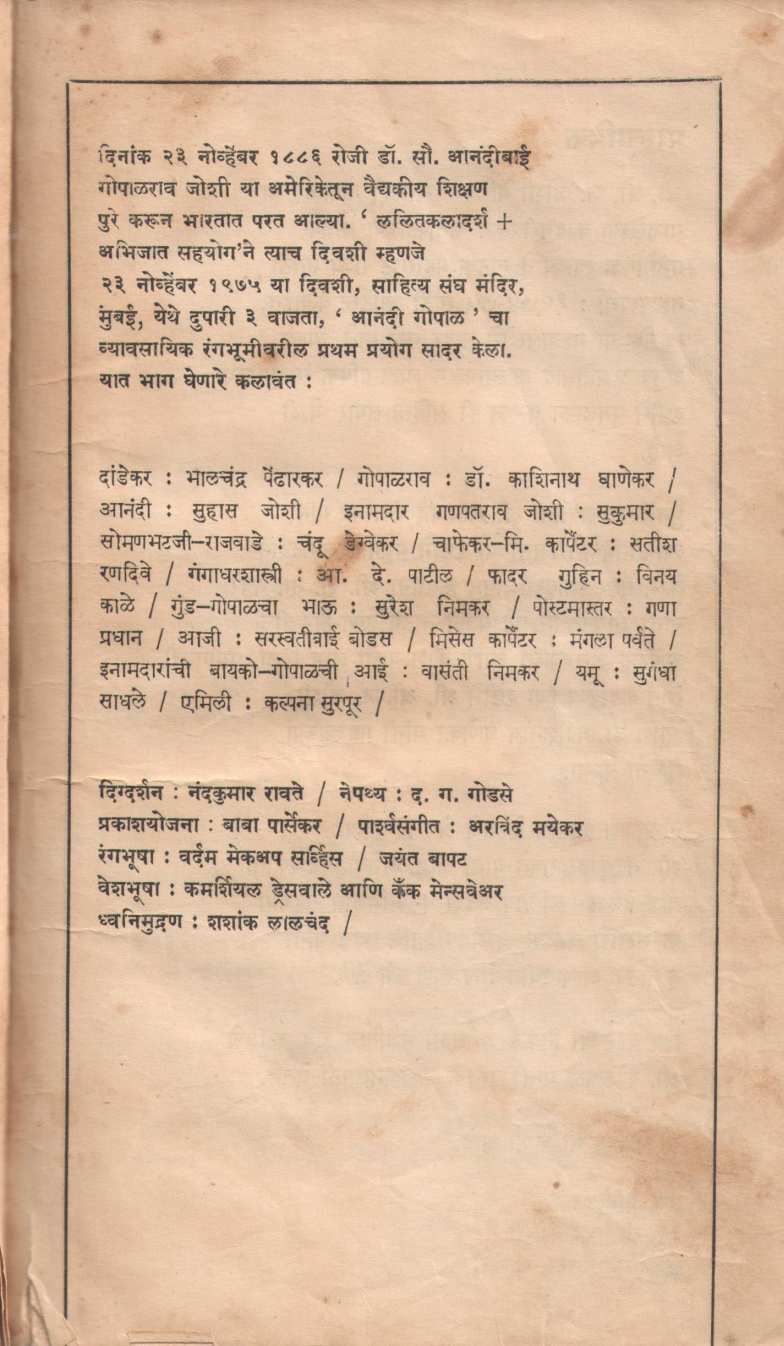 दिनांक २३ नोव्हेंबर १८८६ रोजी डॉ. सौ. आनंदीबाई
गोपाळराव जोशी या अमेरिकेतून वैद्यकीय शिक्षण
पुरे करून भारतात परत आल्या. ‘ ललितकलादर्श +
अभिजात सहयोग’ने त्याच दिवशी म्हणजे
२३ नोव्हेंबर १९७५ या दिवशी, साहित्य संघ मंदिर,
मुंबई, येथे दुपारी ३ वाजता, ‘ आनंदी गोपाळ ’ चा
व्यावसायिक रंगभूमीवरील प्रथम प्रयोग सादर केला.
यात भाग घेणारे कलावंत :
दांडेकर : भालचंद्र पेंढारकर / गोपाळराव : डॉ. काशिनाथ घाणेकर /
आनंदी : सुहास जोशी / इनामदार गणपतराव जोशी : सुकुमार /
सोमणभटजी–राजवाडे : चंदू डेग्वेकर / चाफेकर–मि. कार्पेंटर : सतीश
रणदिवे / गंगाधरशास्त्री : आ. दे. पाटील / फादर गुहिन : विनय
काळे / गुंड–गोपाळचा भाऊ : सुरेश निमकर / पोस्टमास्तर : गणा
प्रधान / आजी : सरस्वतीबाई बोडस / मिसेस कार्पेंटर : मंगला पर्वते /
इनामदारांची बायको–गोपाळची आई : वासंती निमकर / यमू : सुगंधा
साधले / एमिली : कल्पना सुरपूर /
दिग्दर्शन : नंदकुमार रावते / नेपथ्य : द. ग. गोडसे
प्रकाशयोजना : बाबा पार्सेकर / पार्श्वसंगीत : अरविंद मयेकर
रंगभूषा : वर्दम मेकअप सर्व्हिस / जयंत बापट
वेशभूषा : कमर्शियल ड्रेसवाले आणि कॅंक मेन्सवेअर
ध्वनिमुद्रण : शशांक लालचंद /